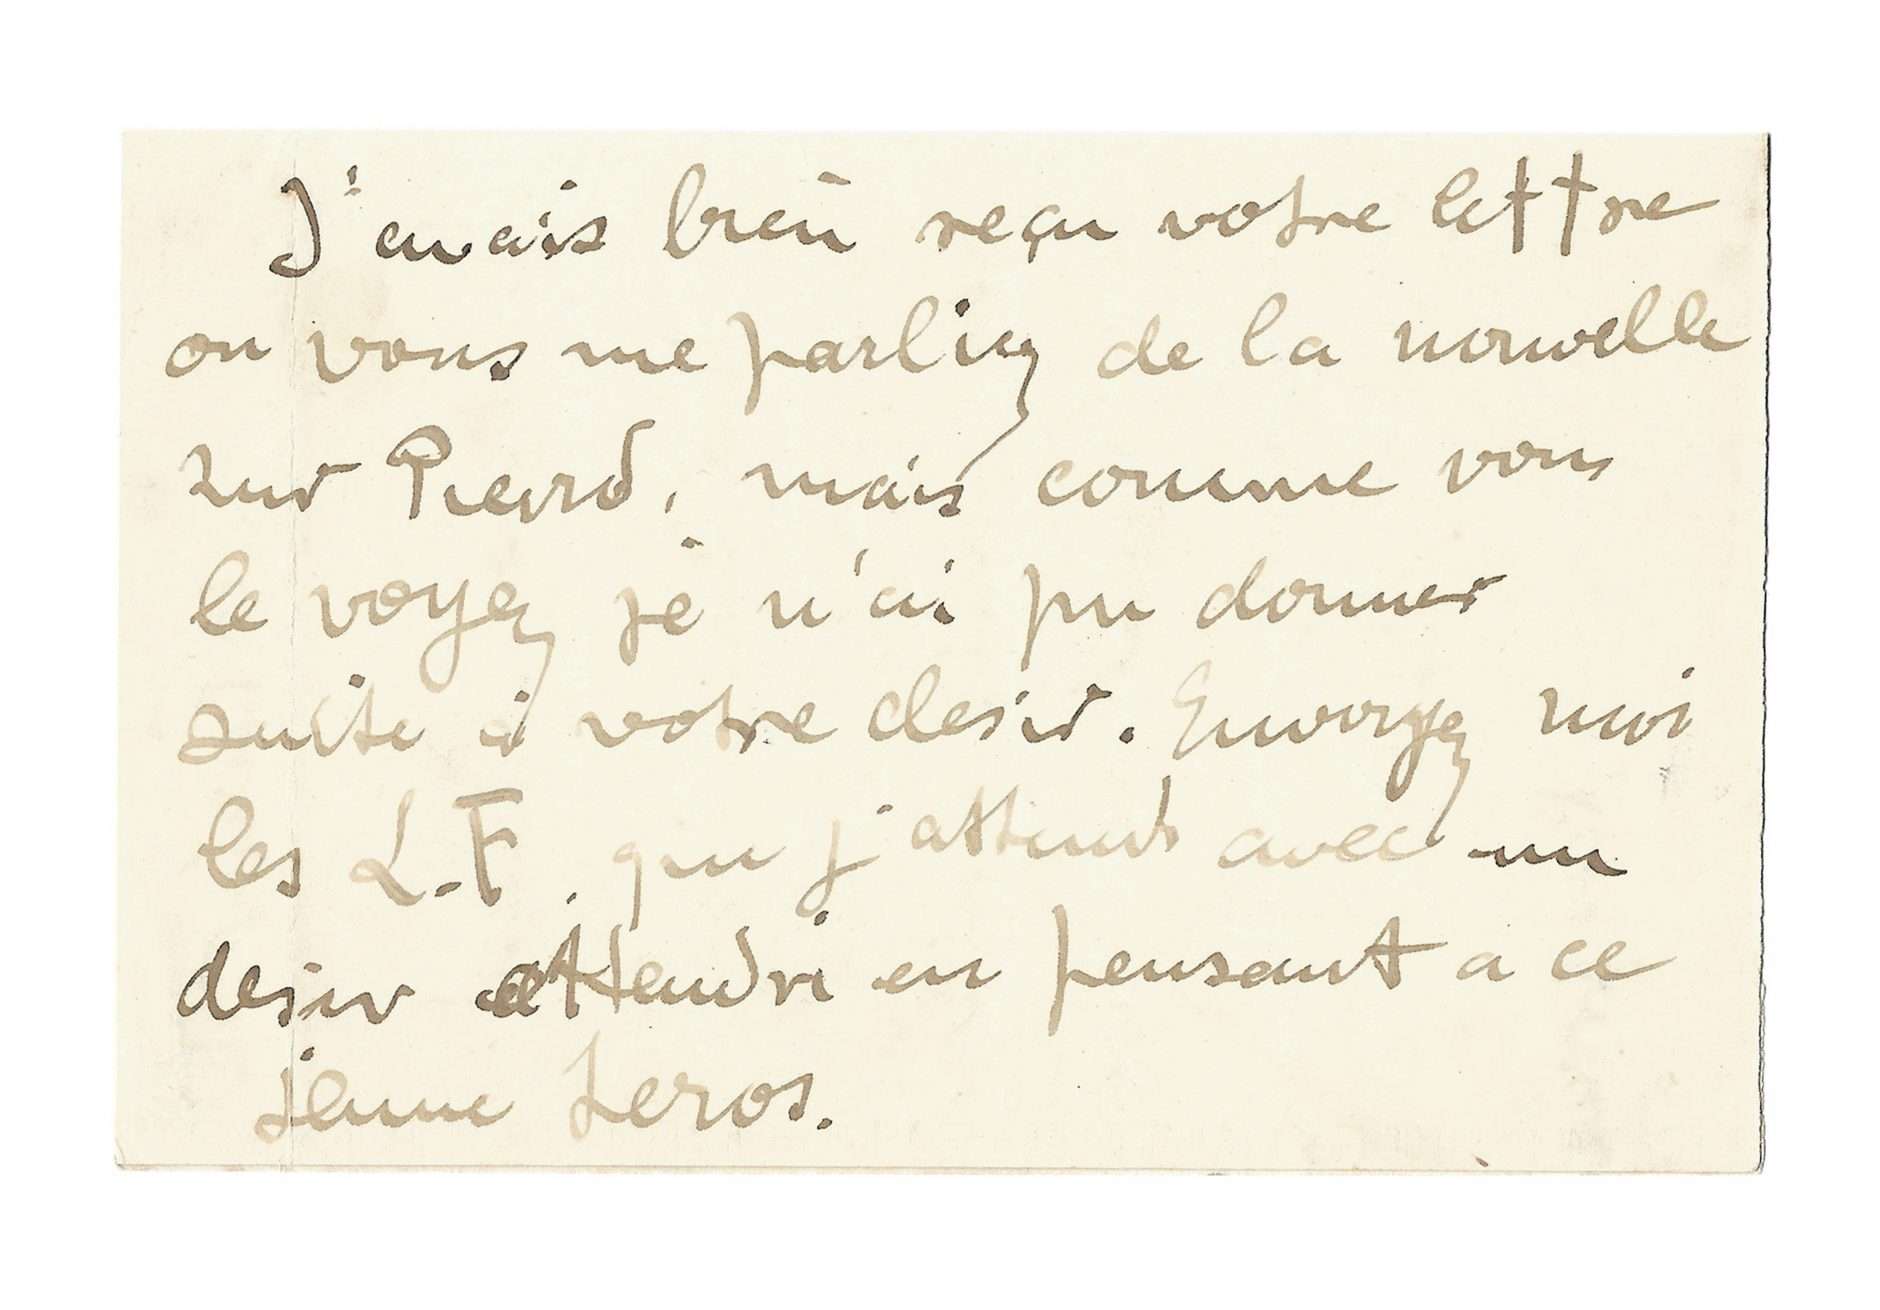 J'avais bien reçu votre lettre
ou vous me parliez de la nouvelle
sur Pierrd, mais comme vous
le voyez je n'ai pu donner
suite à votre desir. Envoyez moi
les L.F. que j'attends avec un
desir attendri en pensant a ce
jeune heros.